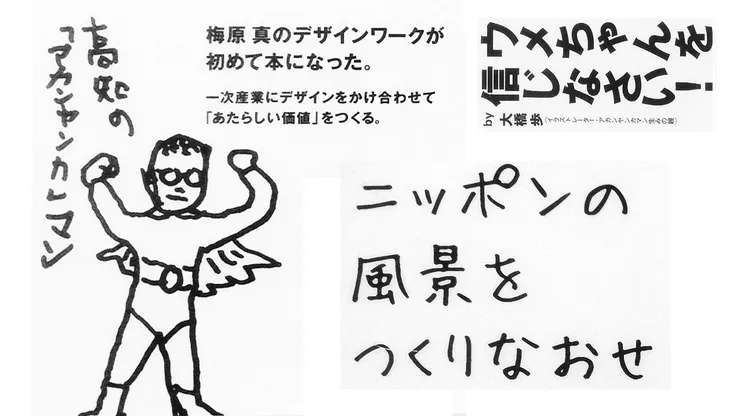 高知の
「アカンヤンカ」マン
梅原 真のデザインワークが
初めて本になった。
一次産業にデザインをかけ合わせて
「あたらしい価値」をつくる。
ウメちゃんを
信じなさい！
by 大橋歩（イラストレーター・アカンヤンカマン生みの親）
ニッポンの
風景を
つくりなおせ